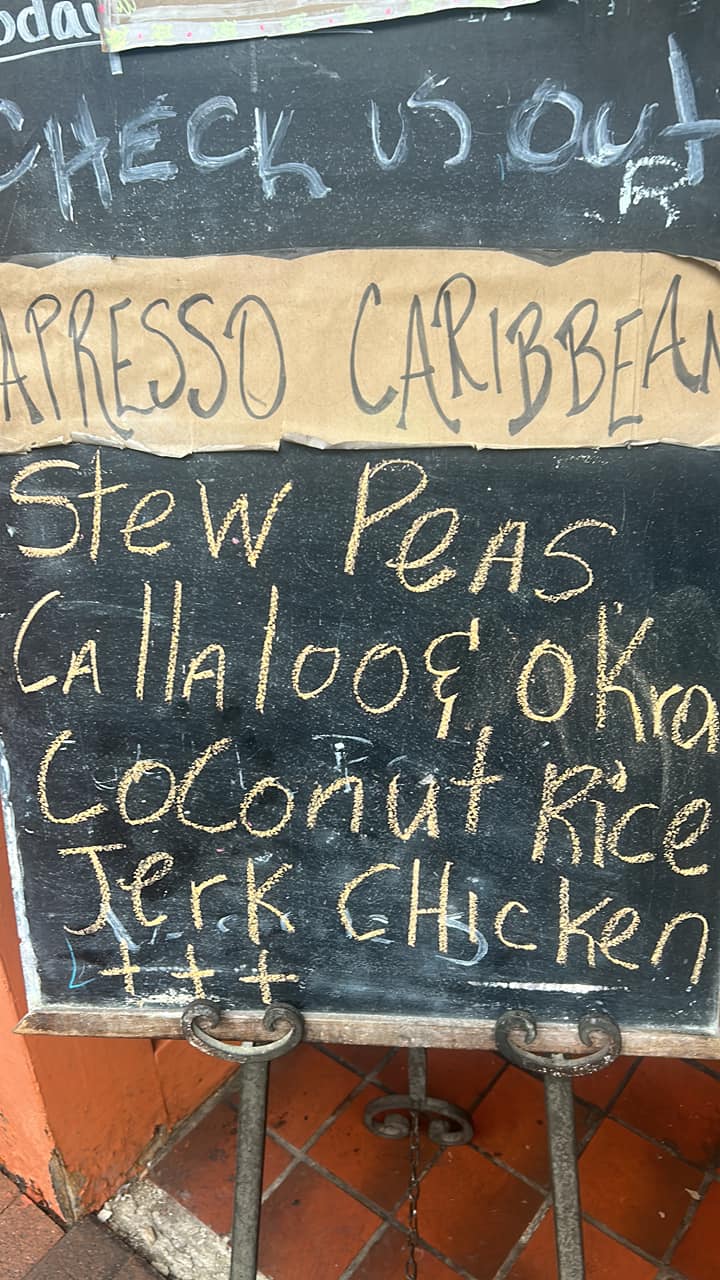 oday
CHECK US OUt
R
APRESSO CARIBBEAN
Stew PeAS
CAllAloo & OKra
CoConut Rice
Jerk CHicken
+ + +